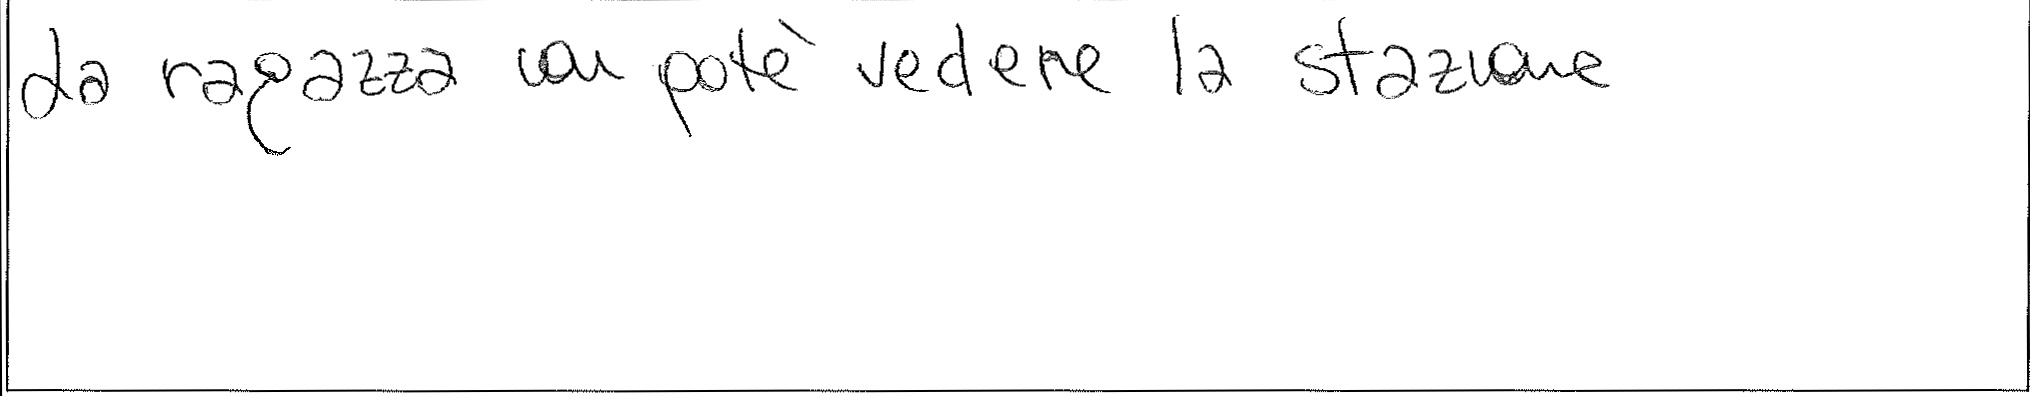 La ragazza non potè vedere la stazione